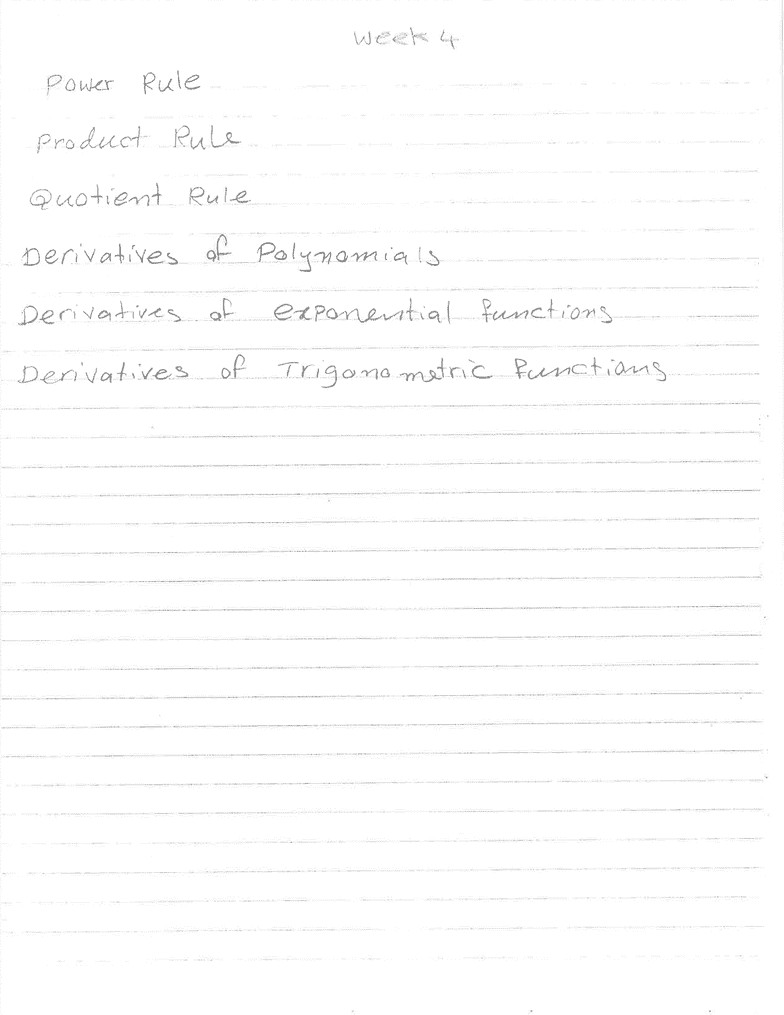 Week 4
Power Rule
Product Rule
Quotient Rule
Derivatives of Polynomials
Derivatives of exponential functions
Derivatives of Trigonometric functions